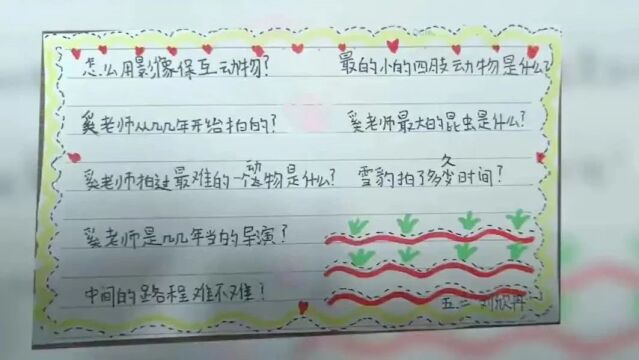 怎么用影像保互动物?
最的小的四肢动物是什么?
奚老师从几几年开始拍的?
奚老师最大的昆虫是什么?
奚老师拍过最难的一个动物是什么?
雪豹拍了多久时间?
奚老师是几几年当的导演?
中间的路程难不难?
五.二 刘欣丹